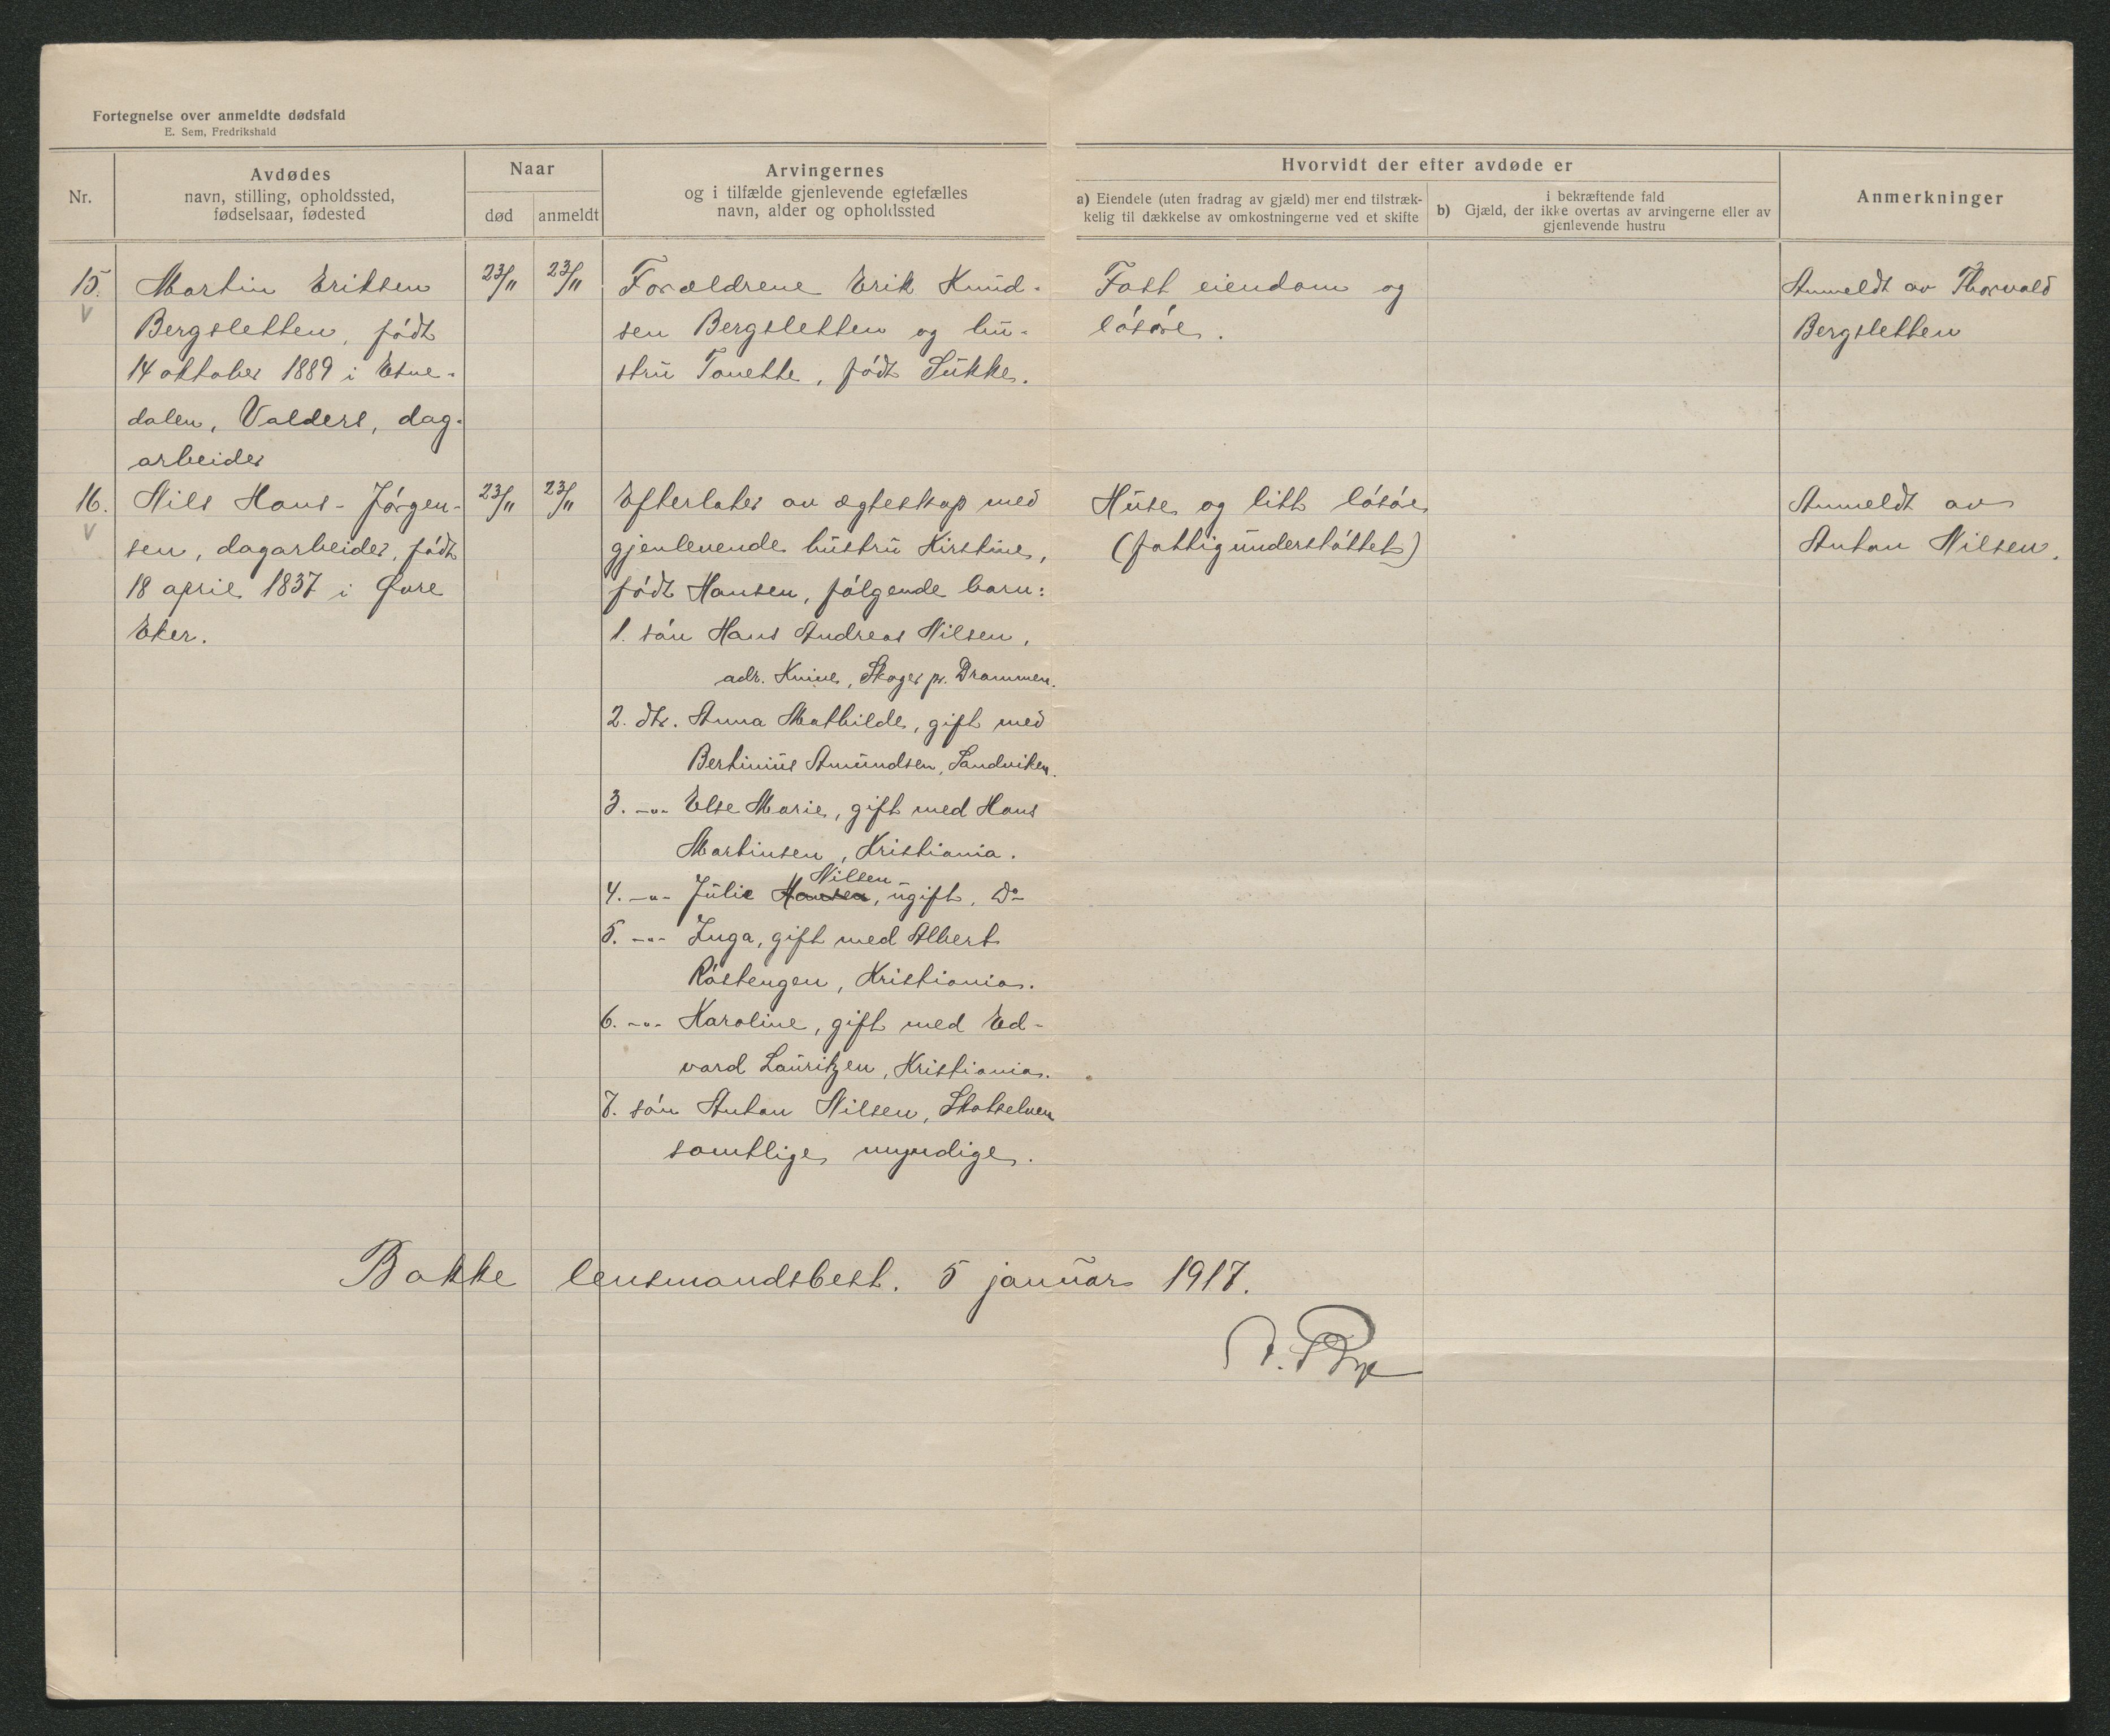 Fortegnelse over anmeldte dødsfald
E. Sem, Fredrikshald
Nr.
Avdødes
navn, stilling, opholdssted,
fødselsaar, fødested
Naar
død
anmeldt
Arvingernes
og i tilfælde gjenlevende egtefælles
navn, alder og opholdssted
Hvorvidt der efter avdøde er
a) Eiendele (uten fradrag av gjæld) mer end tilstræk-
kelig til dækkelse av omkostningerne ved et skifte
i bekræftende fald
b) Gjæld, der ikke overtas av arvingerne eller av
gjenlevende hustru
Anmerkninger
15.
Martin Eriksen
Bergsletten, født
14 oktober 1889 i Etne-
dalen, Valders, dag-
arbeider
23/11
23/11
Forældrene Erik Knud-
sen Bergsletten og hu-
stru Tonette, født Lukke.
Fast eiendom og
løsøre.
Anmeldt av Thorvald
Bergsletten
16.
Nils Hans-Jørgen-
sen, dagarbeider, født
18 april 1837 i Øvre
Eker.
23/11
23/11
Efterlater av ægteskap med
gjenlevende hustru Kirstine,
født Hansen, følgende barn:
1. søn Hans Andreas Nilsen,
adr. Knive, Skoger pr. Drammen.
2. dtr. Anna Mathilde, gift med
Bertinius Amundsen, Sandviken.
3. -"- Else Marie, gift med Hans
Martinsen, Kristiania.
Nilsen
4. -"- Julie Hansen, ugift, Do
5. -"- Inga, gift med Albert
Røstengen, Kristiania.
6. -"- Karoline, gift med Ed-
vard Lauritzen, Kristiania.
7. søn Anton Nilsen, Skotselven
samtlige myndige.
Huse og litt løsøre
(fattigunderstøttet)
Anmeldt av
Anton Nilsen.
Bakke lensmandsbest. 5 januar 1917.